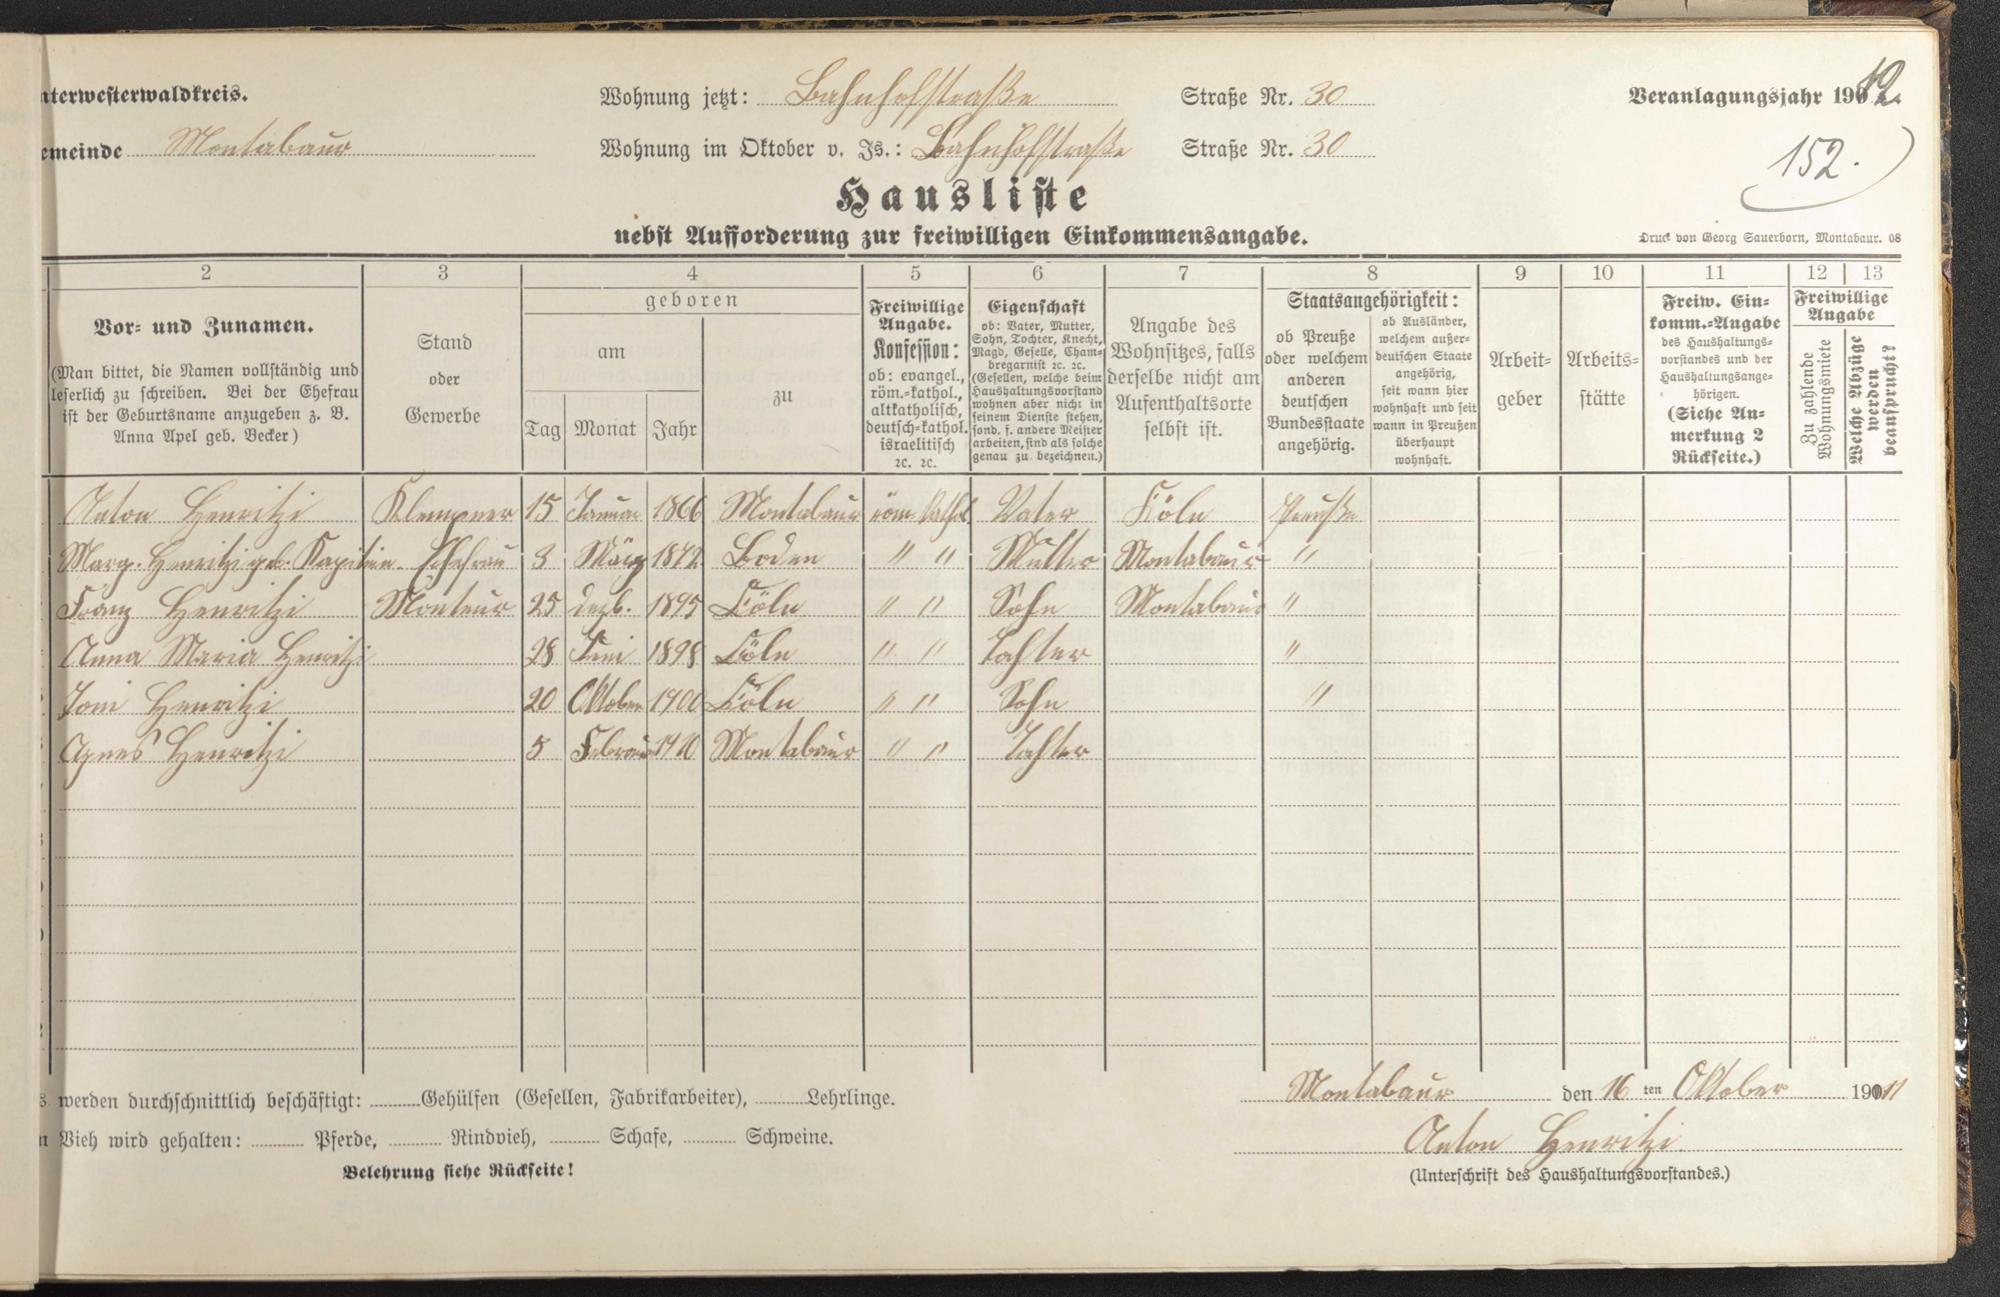 nterwesterwaldkreis.
Wohnung jetzt: Bahnhofstraße Straße Nr. 30
Veranlagungsjahr 1912.
emeinde Montabaur
Wohnung im Oktober v. Js.: Bahnhofstraße Straße Nr. 30
152.
Hausliste
nebst Aufforderung zur freiwilligen Einkommensangabe.
Druck von Georg Sauerborn, Montabaur. 08
2 3 4 5 6 7 8 9 10 11 12 13
Vor- und Zunamen.
(Man bittet, die Namen vollständig und
leserlich zu schreiben. Bei der Ehefrau
ist der Geburtsname anzugeben z. B.
Anna Apel geb. Becker)
Stand
oder
Gewerbe
geboren
am
Tag Monat Jahr
zu
Freiwillige
Angabe.
Konfession:
ob: evangel.,
röm.-kathol.,
altkatholisch,
deutsch-kathol.
israelitisch
ꝛc. ꝛc.
Eigenschaft
ob: Vater, Mutter,
Sohn, Tochter, Knecht,
Magd, Geselle, Cham-
bregarnist ꝛc. ꝛc.
(Gesellen, welche beim
Haushaltungsvorstand
wohnen aber nicht in
seinem Dienste stehen,
sond. f. andere Meister
arbeiten, sind als solche
genau zu bezeichnen.)
Angabe des
Wohnsitzes, falls
derselbe nicht am
Aufenthaltsorte
selbst ist.
Staatsangehörigkeit:
ob Preuße
oder welchem
anderen
deutschen
Bundesstaate
angehörig.
ob Ausländer,
welchem außer-
deutschen Staate
angehörig,
seit wann hier
wohnhaft und seit
wann in Preußen
überhaupt
wohnhaft.
Arbeit-
geber
Arbeits-
stätte
Freiw. Ein-
komm.-Angabe
des Haushaltungs-
vorstandes und der
Haushaltungsange-
hörigen.
(Siehe An-
merkung 2
Rückseite.)
Freiwillige
Angabe
Zu zahlende
Wohnungsmiete
Welche Abzüge
werden
beansprucht?
Anton Henritzi Klempner 15 Januar 1866 Montabaur röm. Kathol. Vater Köln Preuße
Marg. Henritzi geb. Kapitain. Ehefrau 3 März 1872 Boden " " Mutter Montabaur "
Franz Henritzi Monteur 25 Dezb. 1895 Cöln " " Sohn Montabaur "
Anna Maria Henritzi 28 Juni 1898 Cöln " " Tochter "
Toni Henritzi 20 Oktober 1900 Cöln " " Sohn "
Agnes Henritzi 5 Februar 1910 Montabaur " " Tochter
s werden durchschnittlich beschäftigt: Gehülfen (Gesellen, Fabrikarbeiter), Lehrlinge.
Montabaur den 16ten Oktober 1911
n Vieh wird gehalten: Pferde, Rindvieh, Schafe, Schweine.
Anton Henritzi.
Belehrung siehe Rückseite!
(Unterschrift des Haushaltungsvorstandes.)